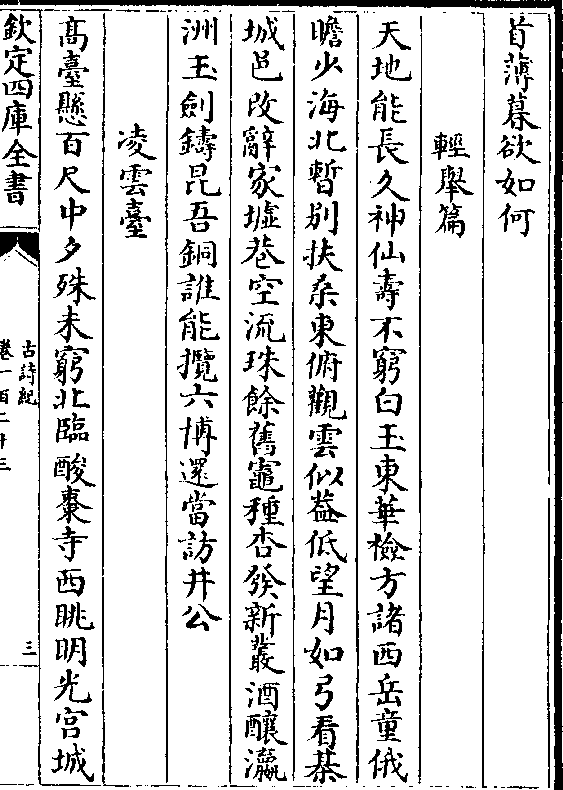 首薄暮欲如何
輕舉篇
天地能長久神仙壽不窮白玉東華檢方諸西岳童俄
瞻少海北暫别扶桑東俯觀雲似葢低望月如弓看棊
城邑改辭家墟巷空流珠餘舊竈種杏發新叢酒釀瀛
洲玉劍鑄昆吾銅誰能攬六博還當訪井公
凌雲臺
高臺懸百尺中夕殊未窮北臨酸棗寺西眺明光宫城
欽定四庫全書
古詩紀
卷一百二十三
三